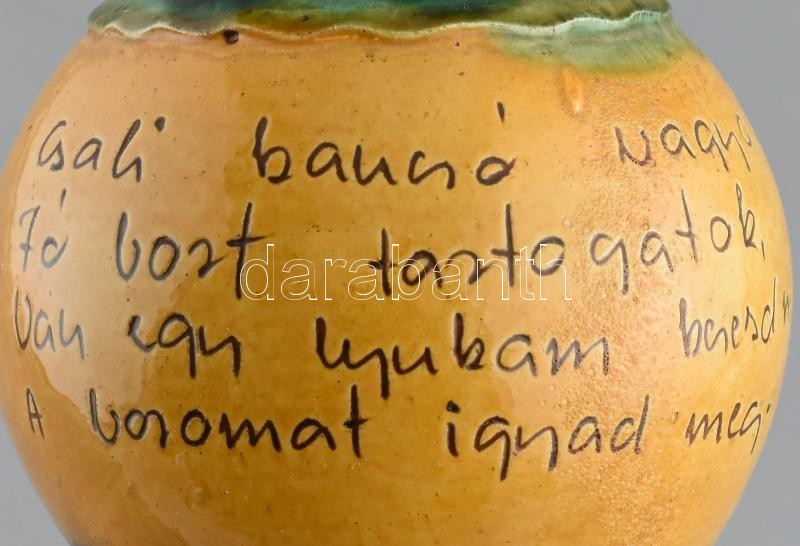 Csali bancsó vagyo
Jó bort tartogatok,
Van egy lyukam keresd m
A boromat igyad meg.
darabanth